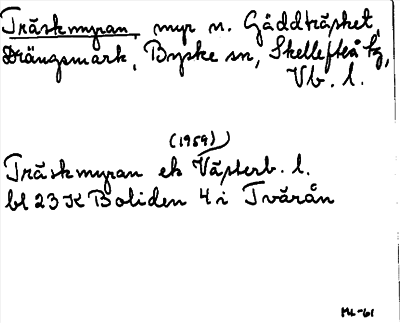 Träskmyran, myr n. Gåddträsket,
Drängsmark, Byske sn, Skellefteå tg,
Vb. l.
(1959)
Träskmyran ek Västerb. l.
bl 23 K Boliden 4 i Tvärån
ML-61